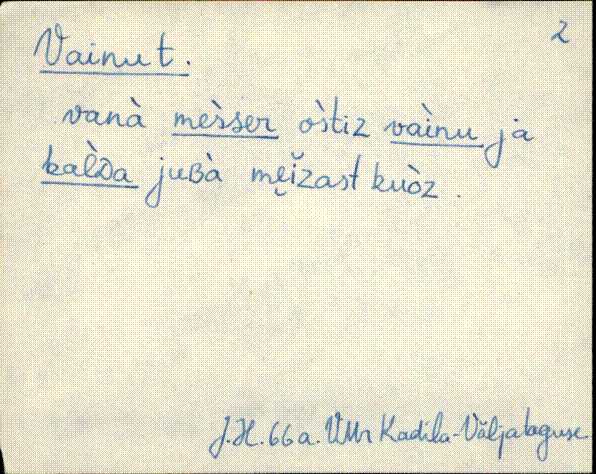 2
Vainut.
vanà mèsser òstiz vaìnu ja
kalда juʙà męĭzast kuòz.
J.H. 66 a. VMr Kadila-Väljataguse.